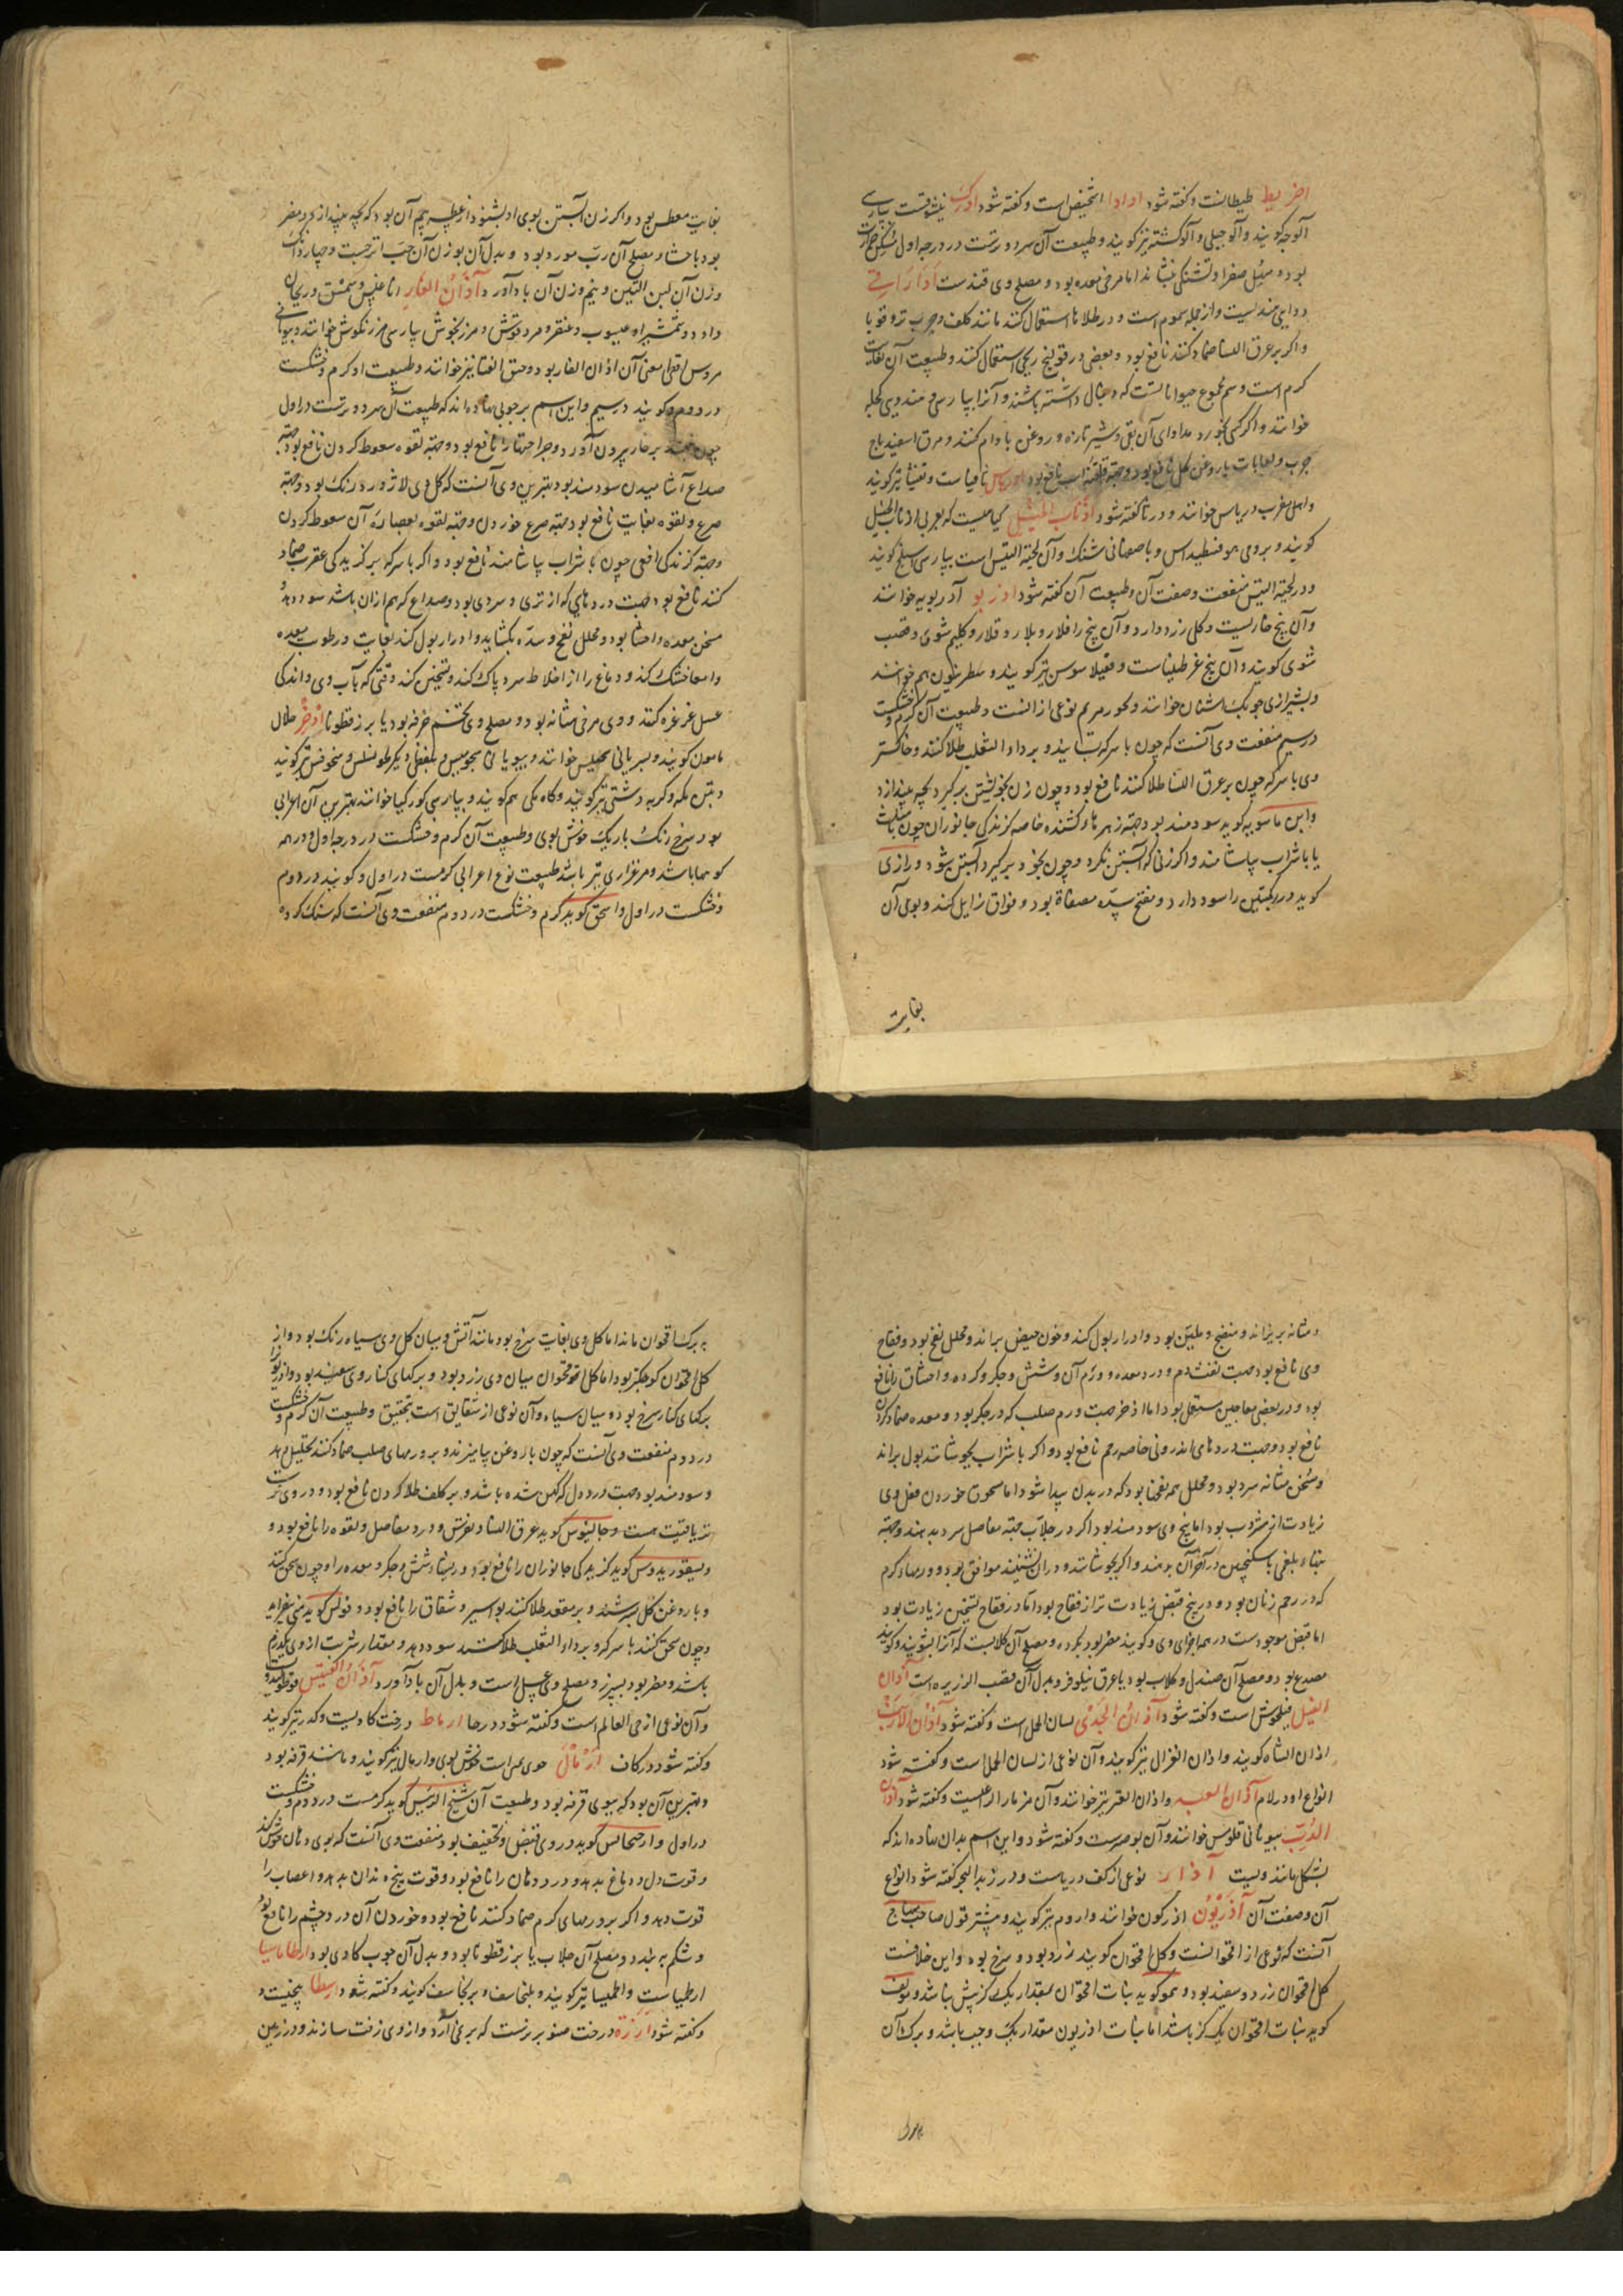 اخریط طیطانست و گفته شود اداد اشخیص است و گفته شود ادرک نیشوقست بپارسی
آلوجه کویند و آلو جبلی و آلو کشته نیز کویند و طبیعت آن سرد و ترست در درجه اول
بود و مسهل صفرا و تشنکی بنشاند اما مرخی معده بود و مصلح وی قندست اداراقی
دوایی هندیست و از جمله سموم است و در طلاها استعمال کنند مانند کلف و جرب تر و قوبا
و اکر بر عرق النسا ضماد کنند نافع بود و بعضی در قولنج ریحی استعمال کنند و طبیعت آن بغایت
کرم است و سم مجموع حیواناتست که دنبال داشته باشند و آنرا بپارسی و هندوی کچله
خوانند و اکر کسی بخورد مداوای آن بقی و شیر تازه و روغن بادام کنند و مرق اسفیدباج
چرب و لعابات با روغن کل نافع بود و نافیاست و تفسیا نیز کویند
و اهل مغرب دریاس خوانند و در تا گفته شود اذناب الخیل کیاهیست که بعربی اذناب الخیل
کویند و برومی هوفسطیداس و باصفهانی شنک و آن لحیة التیس است بپارسی اسپلنج کویند
و در لحیة التیس منفعت و صفت آن و طبیعت آن گفته شود اذربو آذربویه خوانند
و آن بیخ خاریست و کلی زرد دارد و آن بیخ را قلار و بلار و قلار و کلیم شوی و قصب
شوی کویند و آن بیخ عرطنیثاست و فقیلاسوس نیز کویند و سطرنیون هم خوانند
و بشیرازی چوبک اشنان خوانند و بخور مریم نوعی از انست و طبیعت آن کرم و خشکست
در سیم منفعت وی آنست که چون با سرکه بسایند و بر داء الثعلب طلا کنند و خاکستر
وی با سرکه چون بر عرق النسا طلا کنند نافع بود و چون زن بخویشتن برکیرد بچه بیندازد
و ابن ماسویه کوید سودمند بود جهة زهرهای کشنده خاصه کزندکی جانوران چون
یا با شراب بیاشامند و اکر زنی که آبستن نکردد چون بخود برکیرد آبستن شود و رازی
کوید درد رکبتین را سود دارد و مفتح سده مصفاة بود و فواق زایل کند و بوی آن
بغایت
بغایت معطس بود و اکر زن آبستن بوی او بشنود از عطسه بیم آن بود که بچه بیندازد و مضر
بود باحشا و مصلح آن رب مورد بود و بدل آن بوزن آن حب اترجست و چهار دانک
وزن آن لبن التین و نیم وزن آن بادآورد آذان الفار اناغلس و سمسق و ریحان
داود و شمشیرا و عیبوب و عنقر و مردقوش و مرزنجوش بپارسی مرزنکوش خوانند و بیونانی
مروس اقطی معنی آن اذان الفار بود و حبق القثا نیز خوانند و طبیعت او کرم و خشکست
در دوم و کویند در سیم و این اسم بر چوبی نهاده اند که طبیعت آن سرد و ترست در اول
چون بر خار بیرون آورد و جراحتها را نافع بود و جهة لقوه سعوط کردن نافع بود جهة
صداع آشامیدن سودمند بود بهترین وی آنست که کل وی لاژورد رنک بود و جهة
صرع و لقوه بغایت نافع بود جهة صرع خوردن و جهة لقوه بعصارهٔ آن سعوط کردن
و جهة کزندکی افعی چون با شراب بیاشامند نافع بود و اکر با سرکه بر کزیدکی عقرب ضماد
کنند نافع بود جهت دردهایی که از تری و سردی بود و صداع که هم ازان باشد سود دهد و
مسخن معده و احشا بود و محلل نفخ و سده بکشاید و ادرار بول کند بغایت و رطوبت معده
و امعا خشک کند و دماغ را از اخلاط سرد پاک کند و تسخین کند وقتی که بآب وی و اندکی
عسل غرغره کنند و وی مرخی مثانه بود و مصلح وی تخم خرفه بود یا برزقطونا اذخر خلال
مامون کویند و بسریانی سحیلیس خوانند و بیونانی سجوسیس و بلفظی دیکر طوسلس و سخوفس نیز کویند
و تبن مکه و کربه دشتی نیز کویند و کاه مکی هم کویند و بپارسی کورکیا خوانند بهترین آن اعرابی
بود سرخ رنک باریک خوش بوی و طبیعت آن کرم و خشکست در درجه اول و در همه
کوهها باشد و مرغزاری نیز باشد طبیعت نوع اعرابی کرمست در اول و کویند در دوم
و خشکست در اول و اسحق کوید کرم و خشکست در دوم منفعت وی آنست که سنک کرده
و مثانه بریزاند و منضج و ملین بود و ادرار بول کند و خون حیض براند و محلل نفخ بود و فقاح
وی نافع بود جهت نفث دم و درد معده و ورم آن و شش و جکر و کرده و احشا را نافع
بود و در بعضی معاجین مستعمل بود اما اذخر جهت ورم صلب که در جکر بود و معده ضماد کردن
نافع بود و جهت دردهای اندرونی خاصه رحم نافع بود و اکر با شراب بجوشانند بول براند
و مسخن مثانه سرد بود و محلل همه نفخها بود که در بدن پیدا شود اما مسحوق خوردن فعل وی
زیادت از مشروب بود اما بیخ وی سودمند بود اکر در جلاب جهة مفاصل سرد بدهند و جهة
تبهاء بلغمی با سکنجبین در آخر آن بدهند و اکر بجوشانند و دران نشینند موافق بود و ورمهاء کرم
که در رحم زنان بود و در بیخ قبض زیادت تر از فقاح بود اما در فقاح تسخین زیادت بود
اما قبض موجودست در همه اجزای وی و کویند مضر بود بکرده و مصلح آن کلابست که آنرا بشویند و کویند
مصدع بود و مصلح آن صندل و کلاب بود یا عرق نیلوفر و بدل آن قصب الذریره است آذان
الفیل فیلکوش است و گفته شود آذان الجدی لسان الحمل است و گفته شود آذان الارنب
اذان الشاه کویند و اذان الغزال نیز کویند و آن نوعی از لسان الحمل است و گفته شود
انواع او در لام آذان العبد و اذان العنز نیز خوانند و آن مزمار الراعیست و گفته شود آذان
الدب بیونانی قلومس خوانند و آن بوصیرست و گفته شود و این اسم بدان نهاده اند که
بشکل مانند ویست آذار نوعی از کف دریاست و در زبد البحر گفته شود انواع
آن و صفت آن آذریون آذرکون خوانند و اروم نیز کویند و پیشتر قول صاحب منهاج
آنست که نوعی از اقحوانست و کل اقحوان کویند زرد بود و سرخ بود و این خلافست
کل اقحوان زرد و سفید بود و همو کوید نبات اقحوان بمقدار یک کز بیش باشد و مولف
کوید نبات اقحوان یک کز باشد اما نبات اذریون مقدار یک وجب باشد و برک آن
بر برک اقحوان ماند اما کل وی بغایت سرخ بود مانند آتش و میان کل وی سیاه رنک بود و از
کل اقحوان کوچکتر بود اما کل اقحوان میان وی زرد بود و برکهای کنار وی سفید بود و آذریون را
برکهای کنار سرخ بود و میان سیاه و آن نوعی از شقایق است بتحقیق و طبیعت آن کرم و خشکست
در دوم منفعت وی آنست که چون با روغن بیامیزند و بر ورمهای صلب ضماد کنند تحلیل دهد
و سودمند بود جهت درد دل که کهن شده باشد و بر کلف طلا کردن نافع بود و در وی
تریاقیت هست و جالینوس کوید عرق النسا و نقرس و درد مفاصل و لقوه را نافع بود و
دیسقوریدوس کوید کزیدکی جانوران را نافع بود و ریشهاء شش و جکر و معده را و چون سحق کنند
و با روغن کل بسرشند و بر مقعد طلا کنند بواسیر و شقاق را نافع بود و فولس کوید منی بیفزاید
و چون سحق کنند با سرکه و بر داء الثعلب طلا کنند سود دهد و مقدار شربت از وی یکدرم
باشد و مضر بود بسپرز و مصلح وی عسل است و بدل آن بادآورد آذان القسیس قوطولیدون
و آن نوعی از حی العالم است و گفته شود در حا ارماط درخت کادیست و کدر نیز کویند
و گفته شود در کاف ارمال جوی عمراست خوش بوی و ارمال نیز کویند و مانند قرفه بود
و بهترین آن بود که ببوی قرفه بود و طبیعت آن شیخ الرئیس کوید کرمست در دوم و خشکست
در اول و ارجیجانس کوید در وی قبض و تجفیف بود منفعت وی آنست که بوی دهان خوش کند
و قوت دل و دماغ بدهد و درد دهان را نافع بود و قوت بیخ دندان بدهد و اعصاب را
قوت دهد و اکر بر ورمهای کرم ضماد کنند نافع بود و خوردن آن درد چشم را نافع بود
و شکم ببندد و مصلح آن جلاب یا برزقطونا بود و بدل آن چوب کادی بود ارطاماسیا
ارطیماسیاست و اطمیسیا نیز کویند و بلنجاسف و برنجاسف کویند و گفته شود ارسطا بیخیست و
گفته شود ارزة درخت صنوبرست که بری آرد و از وی زفت سازند و در زمین